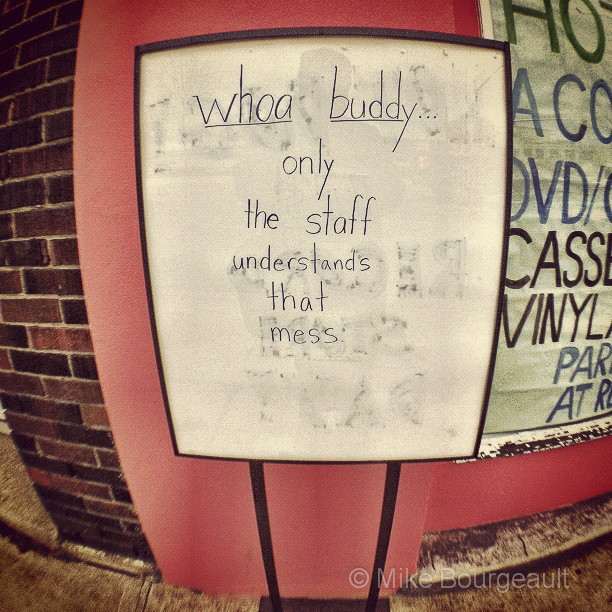 whoa buddy...
only
the staff
understands
that
mess.
HO
A CO
DVD/
CASSE
VINYL
PAR
AT RE
© Mike Bourgeault